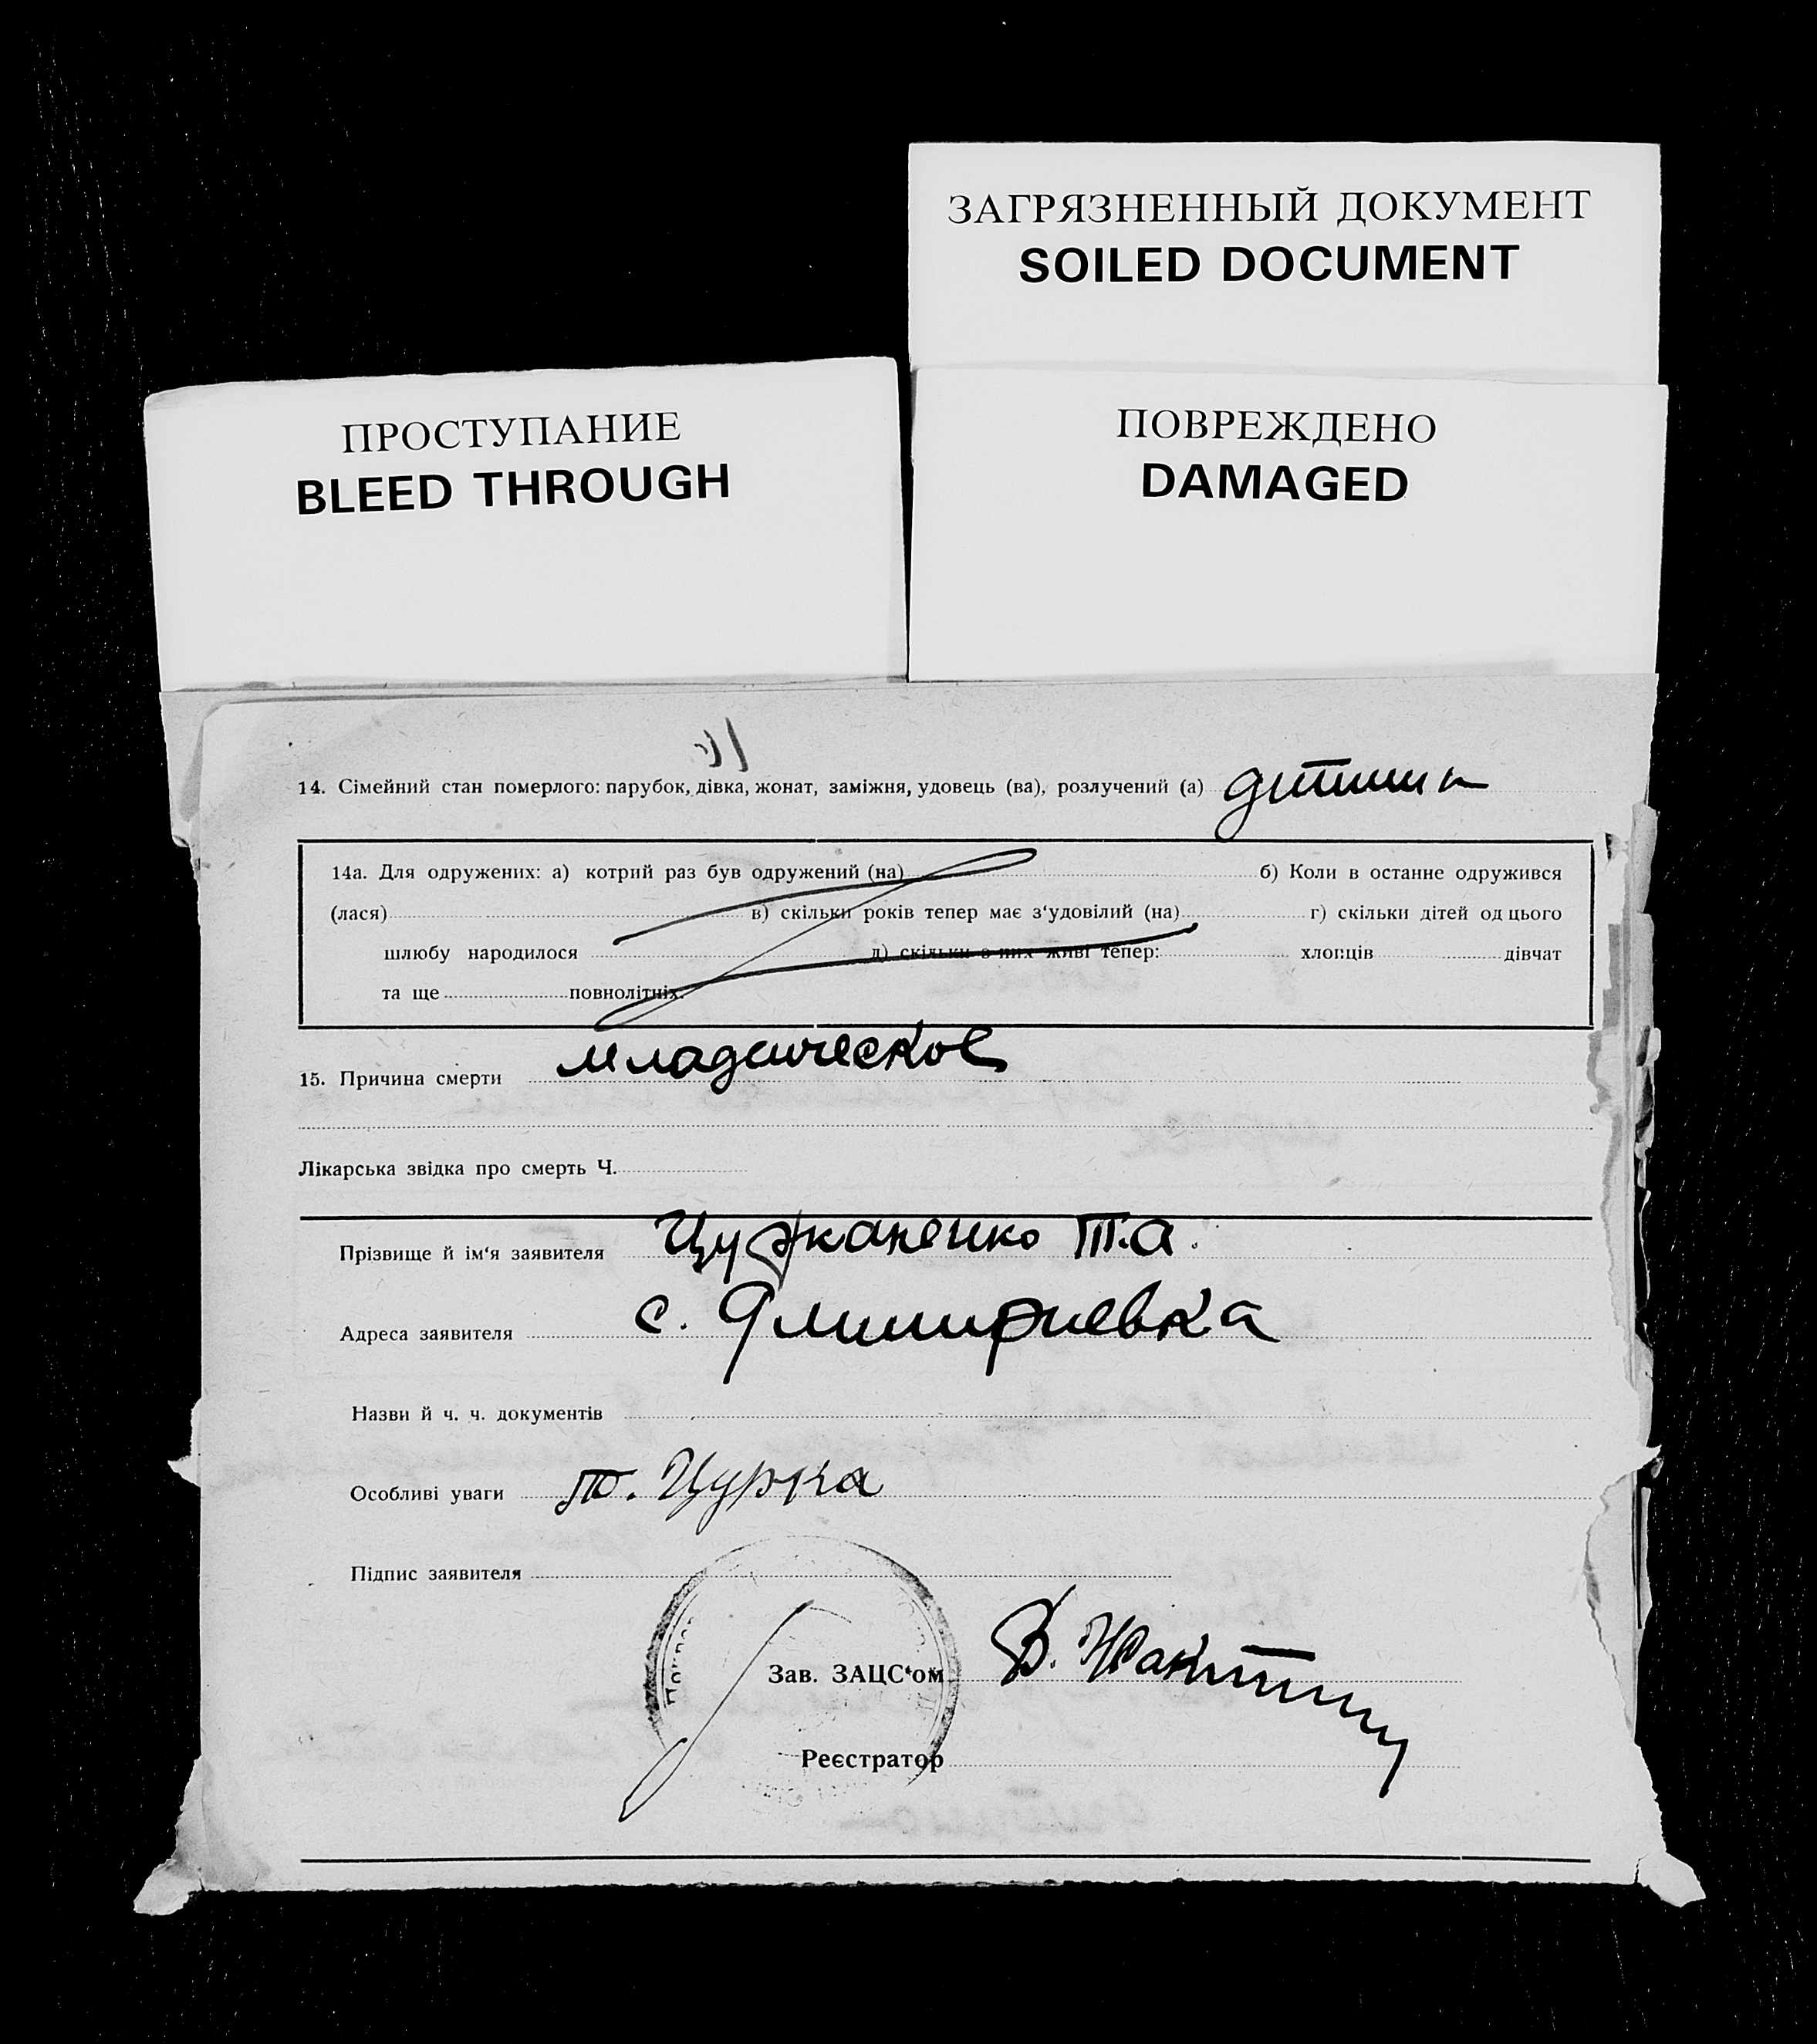 ЗАГРЯЗНЕННЫЙ ДОКУМЕНТ
SOILED DOCUMENT
ПРОСТУПАНИЕ
BLEED THROUGH
ПОВРЕЖДЕНО
DAMAGED
14. Сімейний стан померлого: парубок, дівка, жонат, заміжня, удовець (ва), розлучений (а) дитина
14а. Для одружених: а) котрий раз був одружений (на) б) Коли в останне одружився
(лася) в) скільки років тепер має з‘удовілий (на) г) скільки дітей од цього
шлюбу народилося д) скільки з них живі тепер: хлопців дівчат
та ще повнолітніх.
младенческое
15. Причина смерти
Лікарська звідка про смерть Ч.
Прізвище й ім‘я заявителя Т.А.
Адреса заявителя с. Дмитриевка
Назви й ч. ч. документів
Особливі уваги т. Цурка
Підпис заявителя
Зав. ЗАЦС‘ом В.
Реєстратор